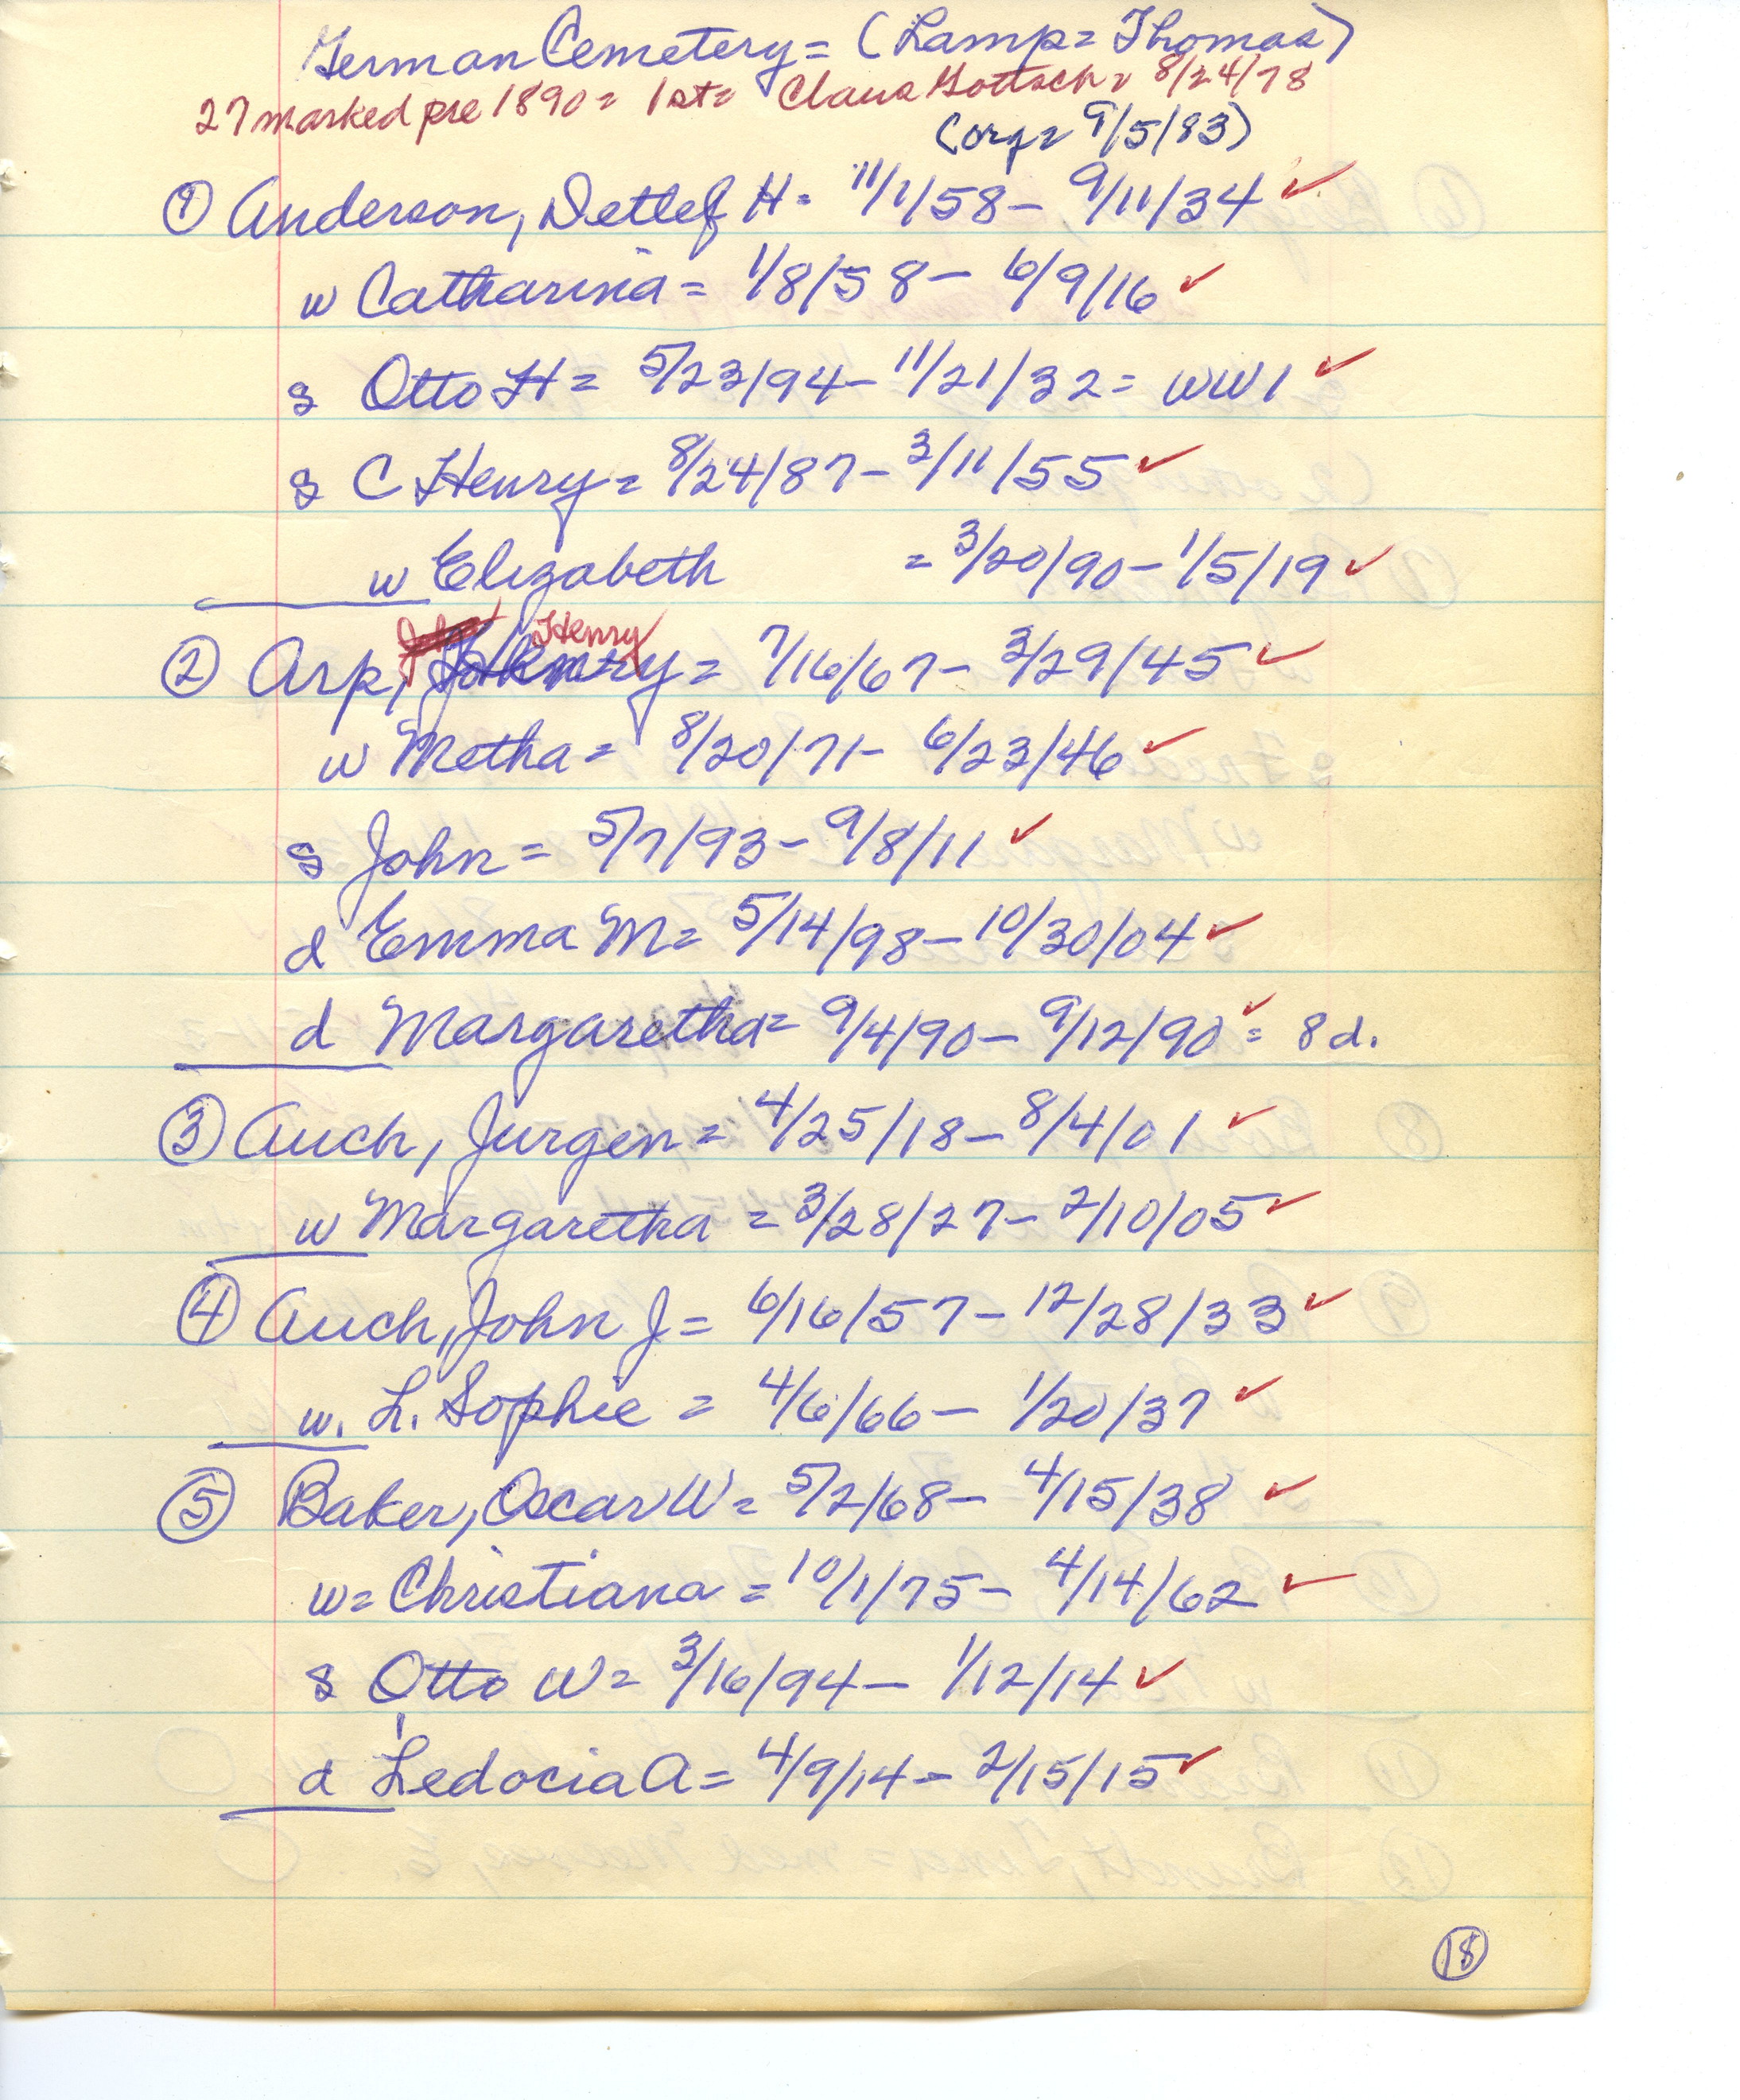 German Cemetery = (Lamp = Thomas)
27 marked pre 1890 = 1st = Claus Gottsch = 8/24/78
(org = 9/5/83)
① Anderson, Detlef H. 11/1/58 - 9/11/34 ✓
w Catharina = 1/8/58 - 6/9/16 ✓
s Otto H = 5/23/94 - 11/21/32 = WW1 ✓
s C Henry = 8/24/87 - 3/11/55 ✓
w Elizabeth = 3/20/90 - 1/5/19 ✓
Henry
② Arp, = 7/16/67 - 3/29/45 ✓
w Metha = 8/20/71 - 6/23/46 ✓
s John = 5/7/93 - 9/8/11 ✓
d Emma M = 5/14/98 - 10/30/04 ✓
d Margaretha = 9/4/90 - 9/12/90 ✓ = 8 d.
③ Auch, Jurgen = 4/25/18 - 8/4/01 ✓
w Margaretha = 3/28/27 - 2/10/05 ✓
④ Auch, John J = 6/16/57 - 12/28/33 ✓
w. L. Sophie = 4/6/66 - 1/20/37 ✓
⑤ Baker, Oscar W = 5/2/68 - 4/15/38 ✓
w = Christiana = 10/1/75 - 4/14/62 ✓
s Otto W = 3/16/94 - 1/12/14 ✓
d Ledocia A = 4/9/14 - 2/15/15 ✓
⑱